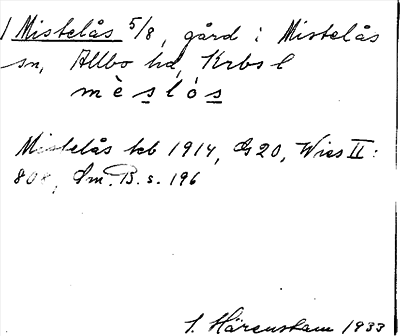 1 Mistelås 5/8, gård i Mistelås
sn, Allbo hd, Krbs l
mèslós
Mistelås kb 1914, G 20, Wies II:
808, Sm. B. s. 196
S. Härenstam 1933